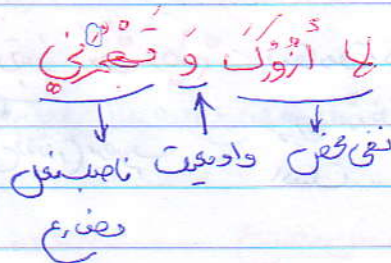 لا أَزُورُكَ وَ تَهْجُرَنِي
نفی محض واو معیت ناصب فعل
مضارع